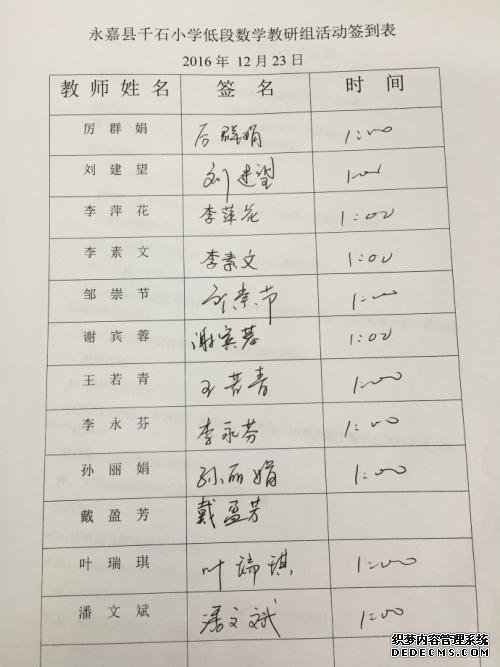 永嘉县千石小学低段数学教研组活动签到表
2016 年 12 月 23 日
教 师 姓 名 签 名 时 间
厉 群 娟 厉群娟 1:00
刘 建 望 刘建望 1:00
李 萍 花 李萍花 1:00
李 素 文 李素文 1:00
邹 崇 节 邹崇节 1:00
谢 宾 蓉 谢宾蓉 1:00
王 若 青 王若青 1:00
李 永 芬 李永芬 1:00
孙 丽 娟 孙丽娟 1:00
戴 盈 芳 戴盈芳
叶 瑞 琪 叶瑞琪 1:00
潘 文 斌 潘文斌 1:00
织梦内容管理系统
DEDECMS.COM